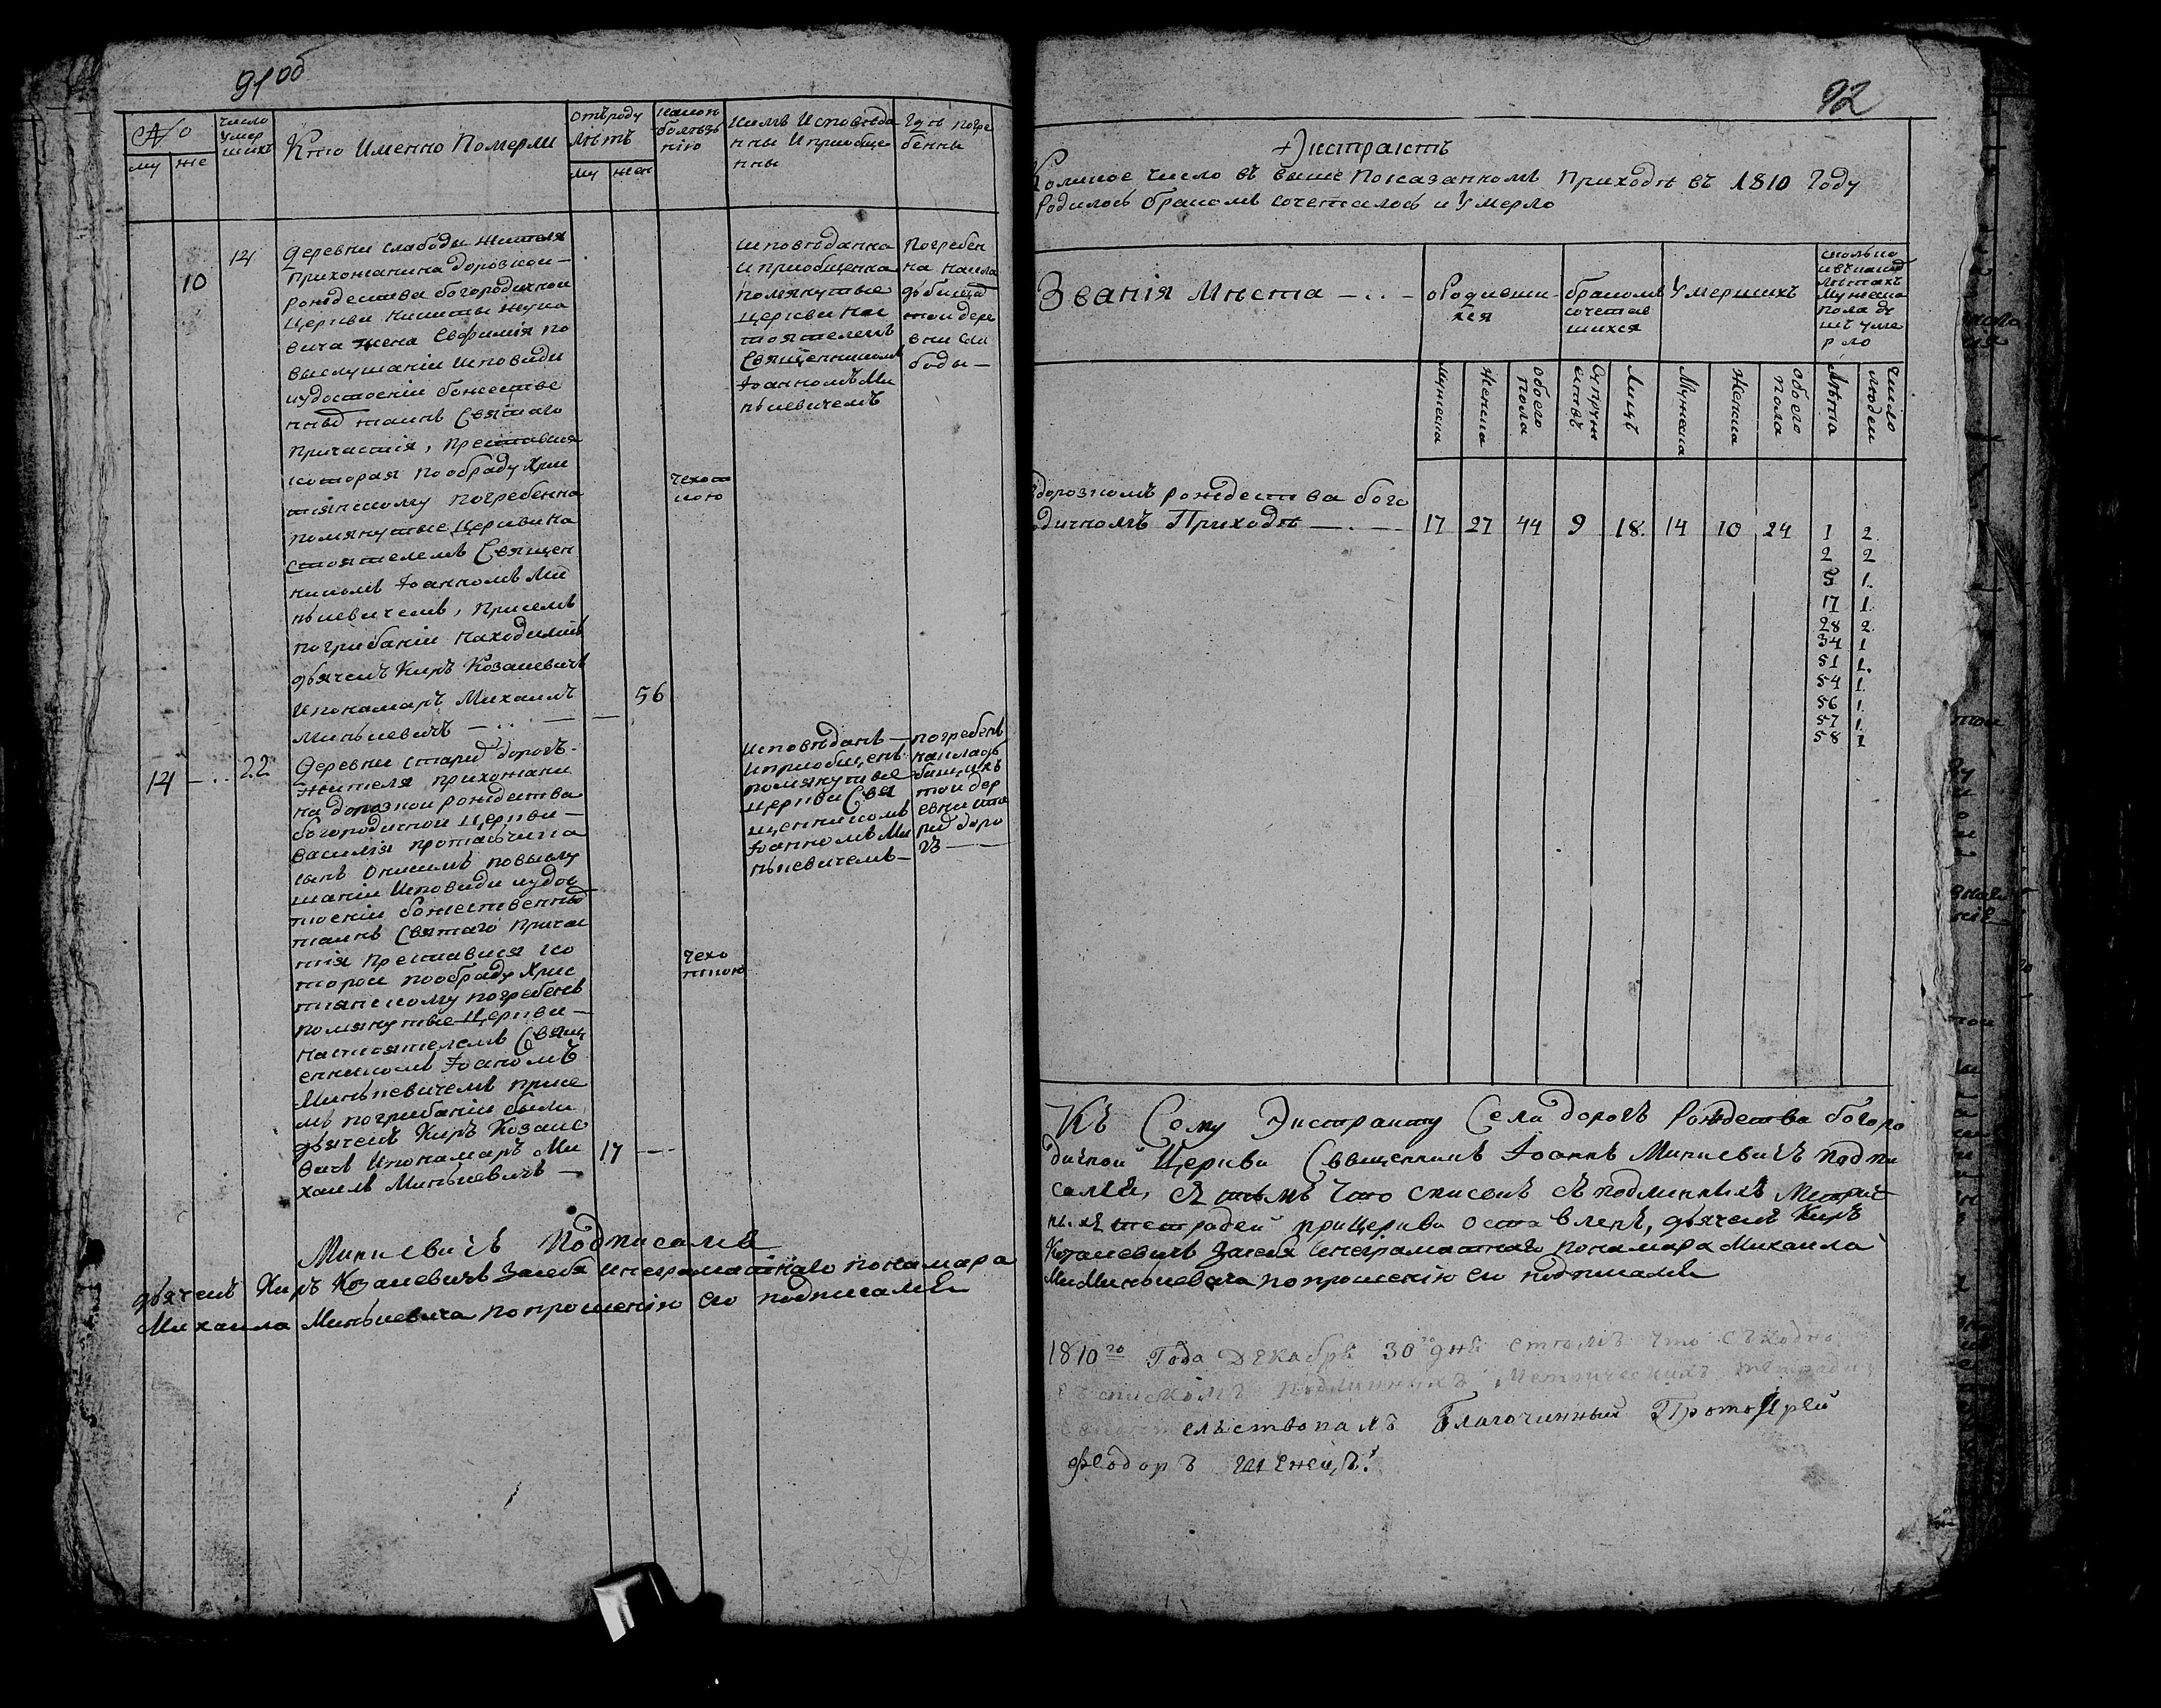 91об
№
му же
число умер шихъ
Кто Именно Померли
отъ роду лѣтъ
му жен
какои болѣзнiю
кимъ Исповѣда
нны И приобще
нны
гдѣ погре
бенны
10
14
Деревни слабоды жителя
прихожанина дорозкои —
рождества богородичнои
церкви Никиты
вича жена Евфимiя по
выслушанiи Исповиди
иудостоенiи божестве
ныхъ таинъ Святаго
Причастiя, преставися
которая пообраду Хрис
тiянскому погребенна
помянутые церкви на
стоятелемъ Священ
никомъ Iоанномъ Ми
нькевичемъ, присемъ
погрибанiи находились
дьячекъ Киръ Козакевичъ
Ипонамаръ Михаилъ
Минькевичъ — . . —
56
чехот
кою
исповѣданна
и приобщенна
помянутые
церкви нас
тоятелемъ
Священникомъ
Iоанномъ Ми
нькевичемъ
погребен
на накла
дбищѣ
тои дере
вни сла
боды —
14 — . . 22
Деревни старыхъ дорогъ
жителя прихожани
на дорозкои рождества
богородичнои церкви —
василiя
сынъ Онисимъ повыслу
шанiи Исповиди иудос
тоенiи божественныхъ
таинъ Святаго причас
тiя преставися ко
торои пообраду Хрис
тианскому погребенъ
помянутые церкви —
настоятелемъ Свящ
енникомъ Iоаномъ
Минькевичемъ присе
мъ погрибанiи были
дьячекъ Киръ Козаке
вичъ Ипонамаръ Ми
хаилъ Минькевичъ —
17 —
чехо
ткою
исповѣданъ —
И приобщенъ
помянутые
церкви Свя
щенникомъ
Iоанномъ Ми
нькевичемъ —
погребенъ
накладь
бищихъ
тои дер
евни ста
рыхъ доро
гъ —
Минкевичъ Подписался
дьячекъ Киръ Козакевичъ засебя инеграматнаго понамара
Михаила Минькевича попрошенiю его подписался
92
Экстрактъ
Коликое число въ выше показанномъ Приходѣ въ 1810 году
родилось бракомъ сочеталось и умерло
Званiя Мѣста — . . —
о Родивши
хся
бракомъ
сочетав
шихся
Умершихъ
сколько
ивъкаких
лѣтахъ
мужеска
пола ду
шъ уме
рло
мужеска
женска
обоего пола
супружествъ
Лицъ
Мужеска
женска
обоего пола
Лѣта
число людеи
дорозкомъ рождества бого
дичномъ Приходѣ — . — 17 27 44 9 18. 14 10 24 1 2.
2 2
5 1.
17 1.
28 2.
34 1
51 1.
54 1.
56 1.
57 1.
58 1
Къ Сему Экстракту Села дорогъ Рождества богоро
дичной Церкви Священникъ Iоаннъ Минкевичъ подпи
сался, съ тѣмъ что списокъ съ подлинныхъ Метрич
ныхъ тетрадей прицеркви оставленъ, дьячекъ Киръ
Козакевичъ засебя инеграматнаго понамара Михаила
МиМинькевича попрошенiю его подписался
1810го Года Декабря 30го дня стемъ что съходно
съ спискомъ подлинныхъ Метрическихъ тетрадей
свидетельствовалъ Благочинный Протоiерей
Феодоръ